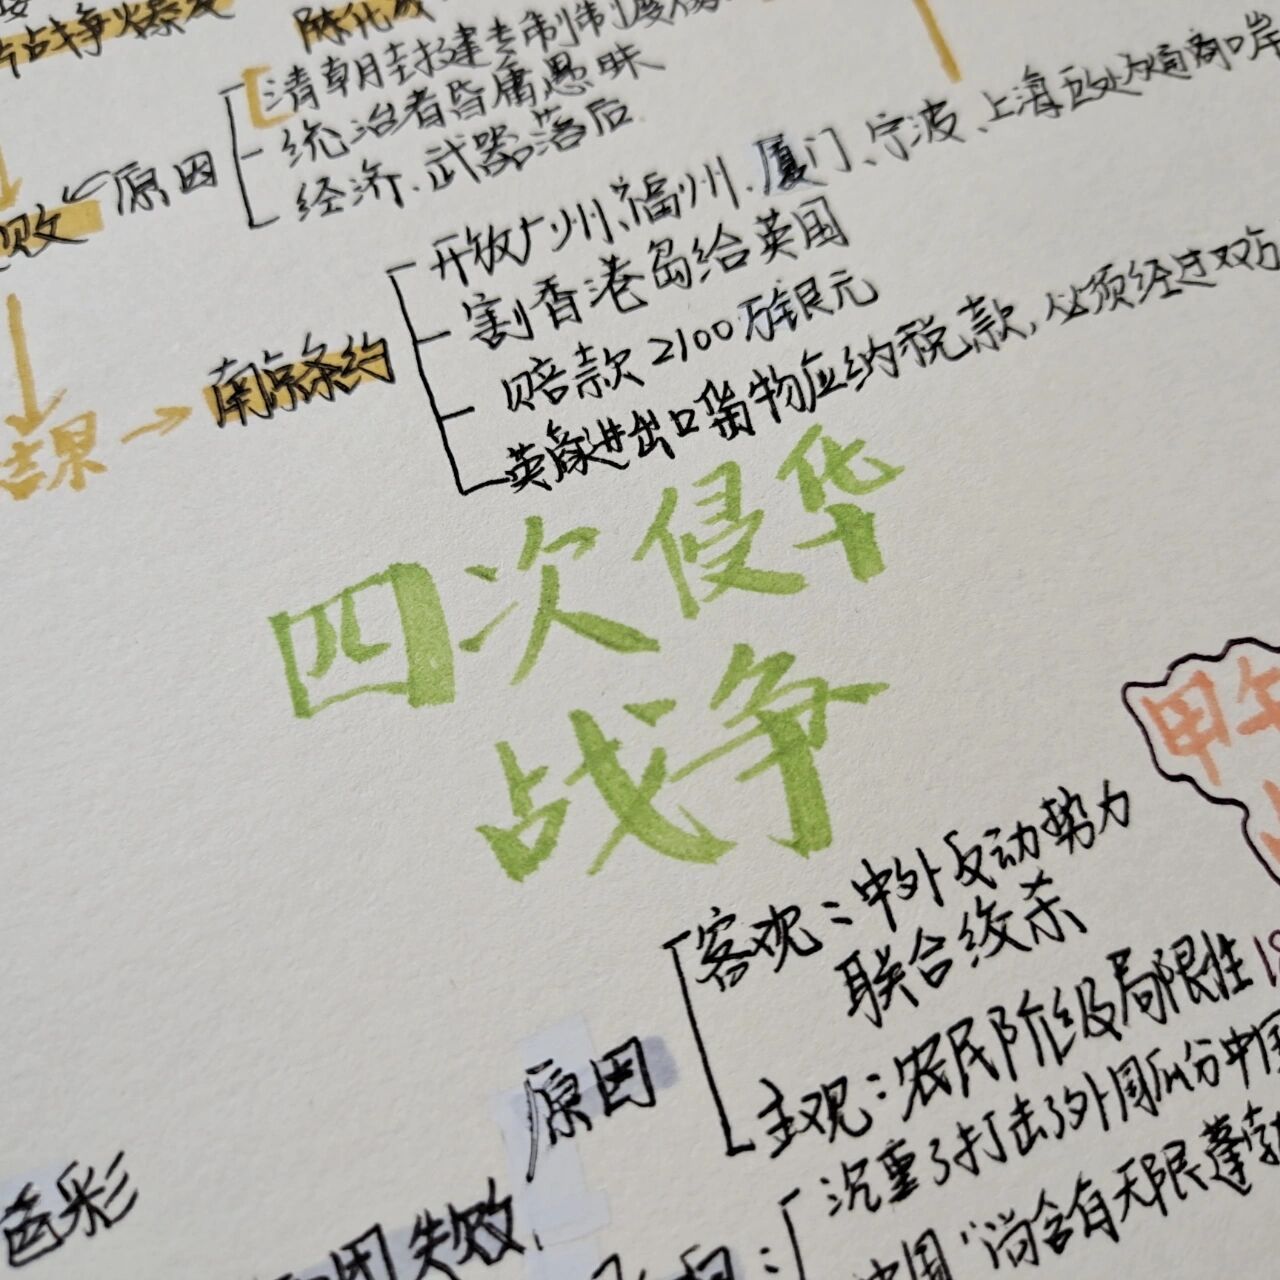 战争爆发
陈化成
清朝封建专制制度
统治者昏庸愚昧
经济、武器落后
败
原因
开放广州、福州、厦门、宁波、上海五处为通商口岸
割香港岛给英国
赔款2100万银元
英商进出口货物应纳税款,必须经过双方
南京条约
结果
四次侵华
战争
甲午
客观：中外反动势力
联合绞杀
主观：农民阶级局限性
原因
沉重了打击了外国瓜分中国
中国“尚含有无限蓬勃
色彩
失败